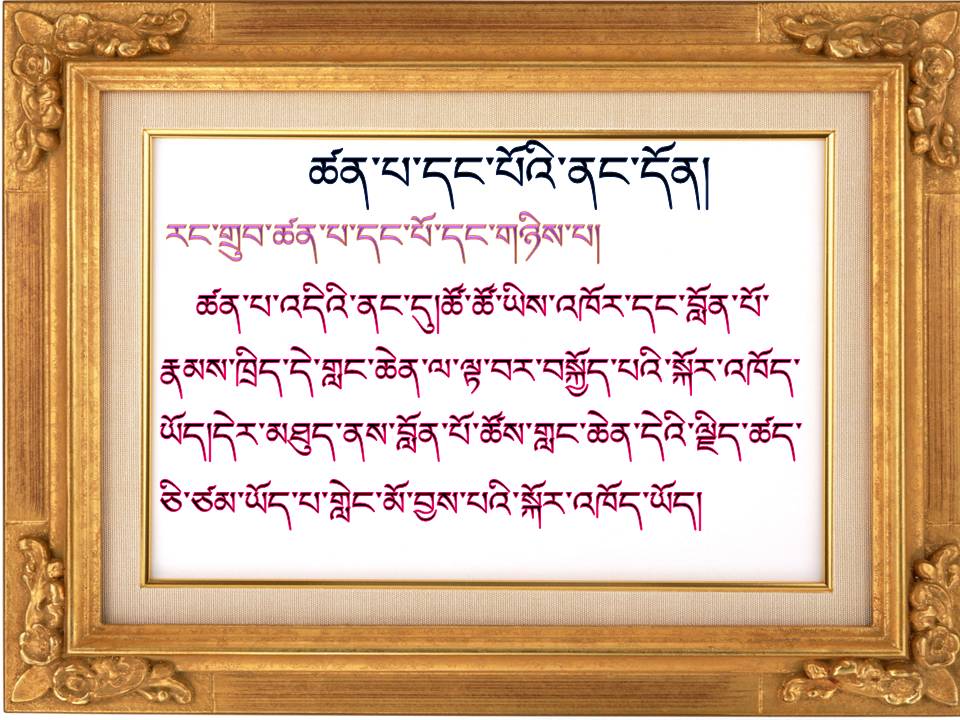 ཚན་པ་དང་པོའི་ནང་དོན།
རང་གྲུབ་ཚན་པ་དང་པོ་དང་གཉིས་པ།
ཚན་པ་འདིའི་ནང་དུ།ཚོ་ཚོ་ཡིས་འཁོར་དང་བློན་པོ་
རྣམས་ཁྲིད་དེ་གླང་ཆེན་ལ་ལྟ་བར་བསྐྱོད་པའི་སྐོར་འཁོད་
ཡོད།དེར་མཐུད་ནས་བློན་པོ་ཚོས་གླང་ཆེན་དེའི་ལྗིད་ཚད་
ཅི་ཙམ་ཡོད་པ་གླེང་མོ་བྱས་པའི་སྐོར་འཁོད་ཡོད།